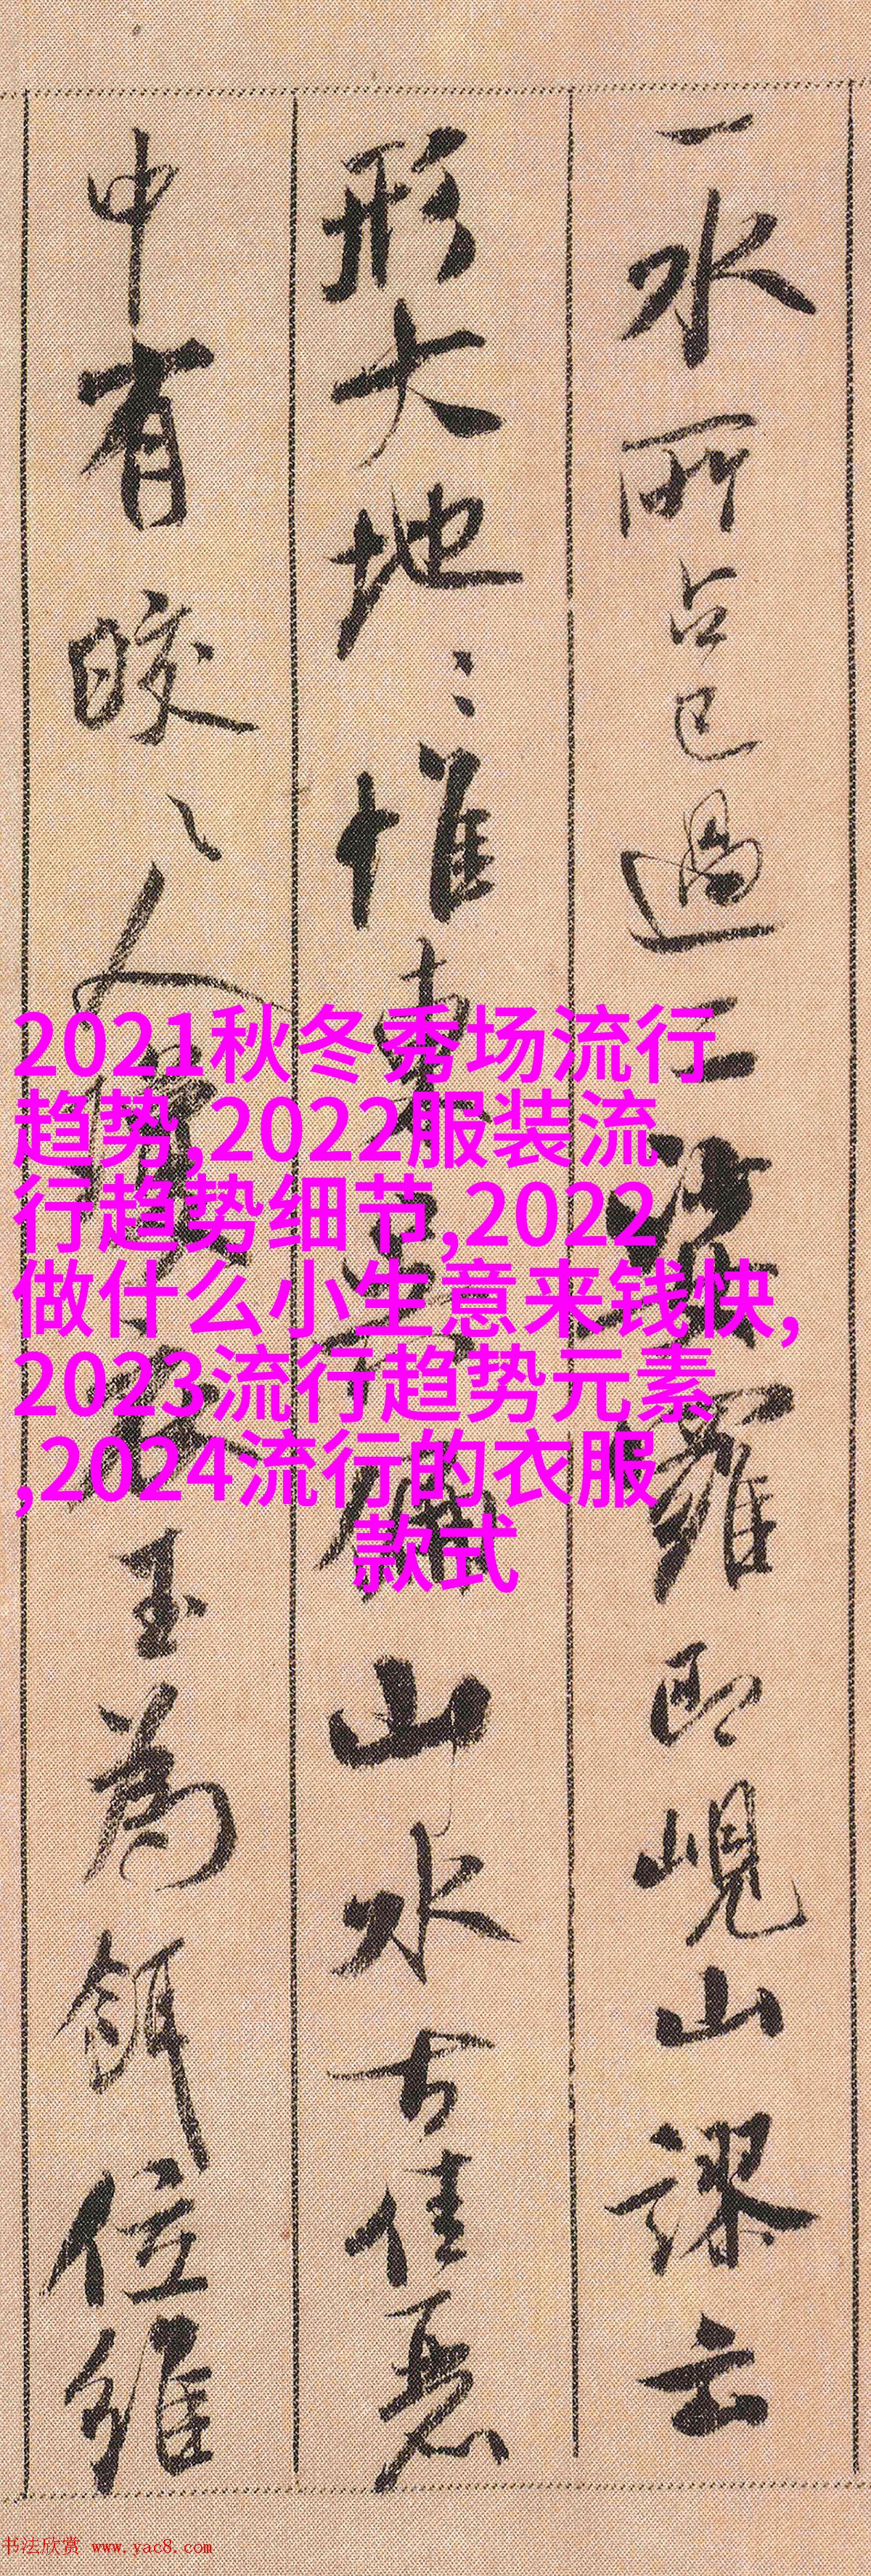 一水所占已過二
羅即峴山謬云
形大地〻惟東
山水古佳惡
中有皎〻人
玉為餌位維
2021秋冬秀场流行
趋势,2022服装流
行趋势细节,2022
做什么小生意来钱快,
2023流行趋势元素
,2024流行的衣服
款式
书法欣赏 www.yac8.com